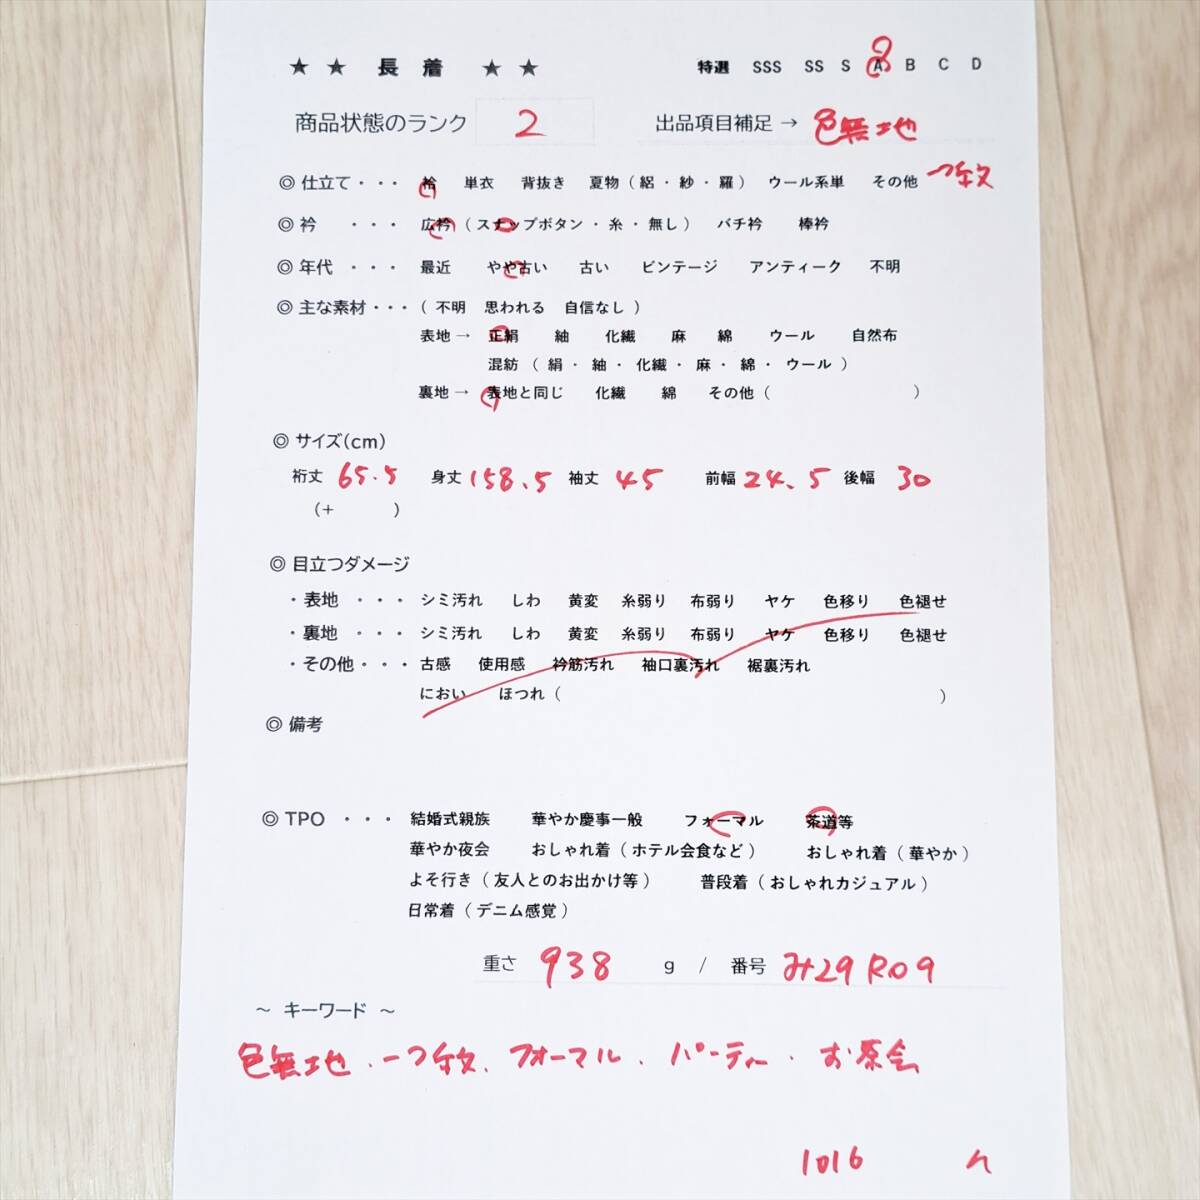 ★ ★ 長 着 ★ ★ 特選 SSS SS S A B C D
商品状態のランク 2 出品項目補足 → 色無地
◎ 仕立て ・・・ 袷 単衣 背抜き 夏物 ( 絽 ・ 紗 ・ 羅 ) ウール系単 その他 一つ紋
◎ 衿 ・・・ 広衿 ( スナップボタン ・ 糸 ・ 無し ) バチ衿 棒衿
◎ 年代 ・・・ 最近 やや古い 古い ビンテージ アンティーク 不明
◎ 主な素材 ・・・ ( 不明 思われる 自信なし )
表地 → 正絹 紬 化繊 麻 綿 ウール 自然布
混紡 ( 絹 ・ 紬 ・ 化繊 ・ 麻 ・ 綿 ・ ウール )
裏地 → 表地と同じ 化繊 綿 その他 ( )
◎ サイズ(cm)
裄丈 65.5 身丈 158.5 袖丈 45 前幅 24.5 後幅 30
(+ )
◎ 目立つダメージ
・ 表地 ・・・ シミ汚れ しわ 黄変 糸弱り 布弱り ヤケ 色移り 色褪せ
・ 裏地 ・・・ シミ汚れ しわ 黄変 糸弱り 布弱り ヤケ 色移り 色褪せ
・ その他 ・・・ 古感 使用感 衿筋汚れ 袖口裏汚れ 裾裏汚れ
におい ほつれ ( )
◎ 備考
◎ TPO ・・・ 結婚式親族 華やか慶事一般 フォーマル 茶道等
華やか夜会 おしゃれ着 ( ホテル会食など ) おしゃれ着 ( 華やか )
よそ行き ( 友人とのお出かけ等 ) 普段着 ( おしゃれカジュアル )
日常着 ( デニム感覚 )
重さ 938 g / 番号 み29R09
～ キーワード ～
色無地・一つ紋、フォーマル、パーティー・お茶会
1016